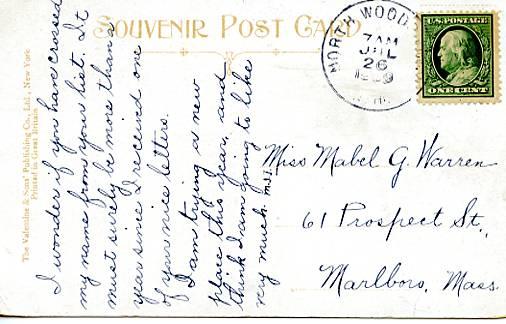 SOUVENIR POST CARD
NORTH WOOD
7 AM
JUL
26
1909
U.S. POSTAGE
ONE CENT
The Valentine & Sons' Publishing Co., Ltd., New York
Printed in Great Britain
I wonder if you have crossed
my name from your list. It
must surely be more than a
year since I received one
of your nice letters.
I am trying a new
place this year, and
think I am going to like
very much.
Miss Mabel G. Warren
61 Prospect St.,
Marlboro, Mass.